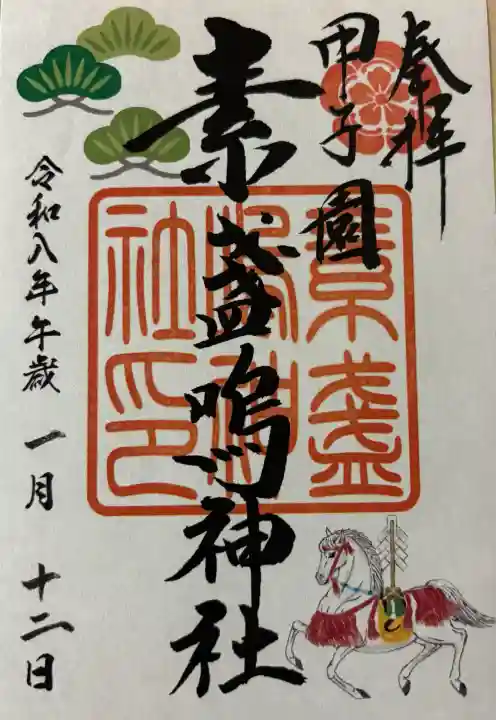 奉拝
甲子園
素盞嗚神社
素盞
嗚神
社印
令和八年午歳 一月 十二日